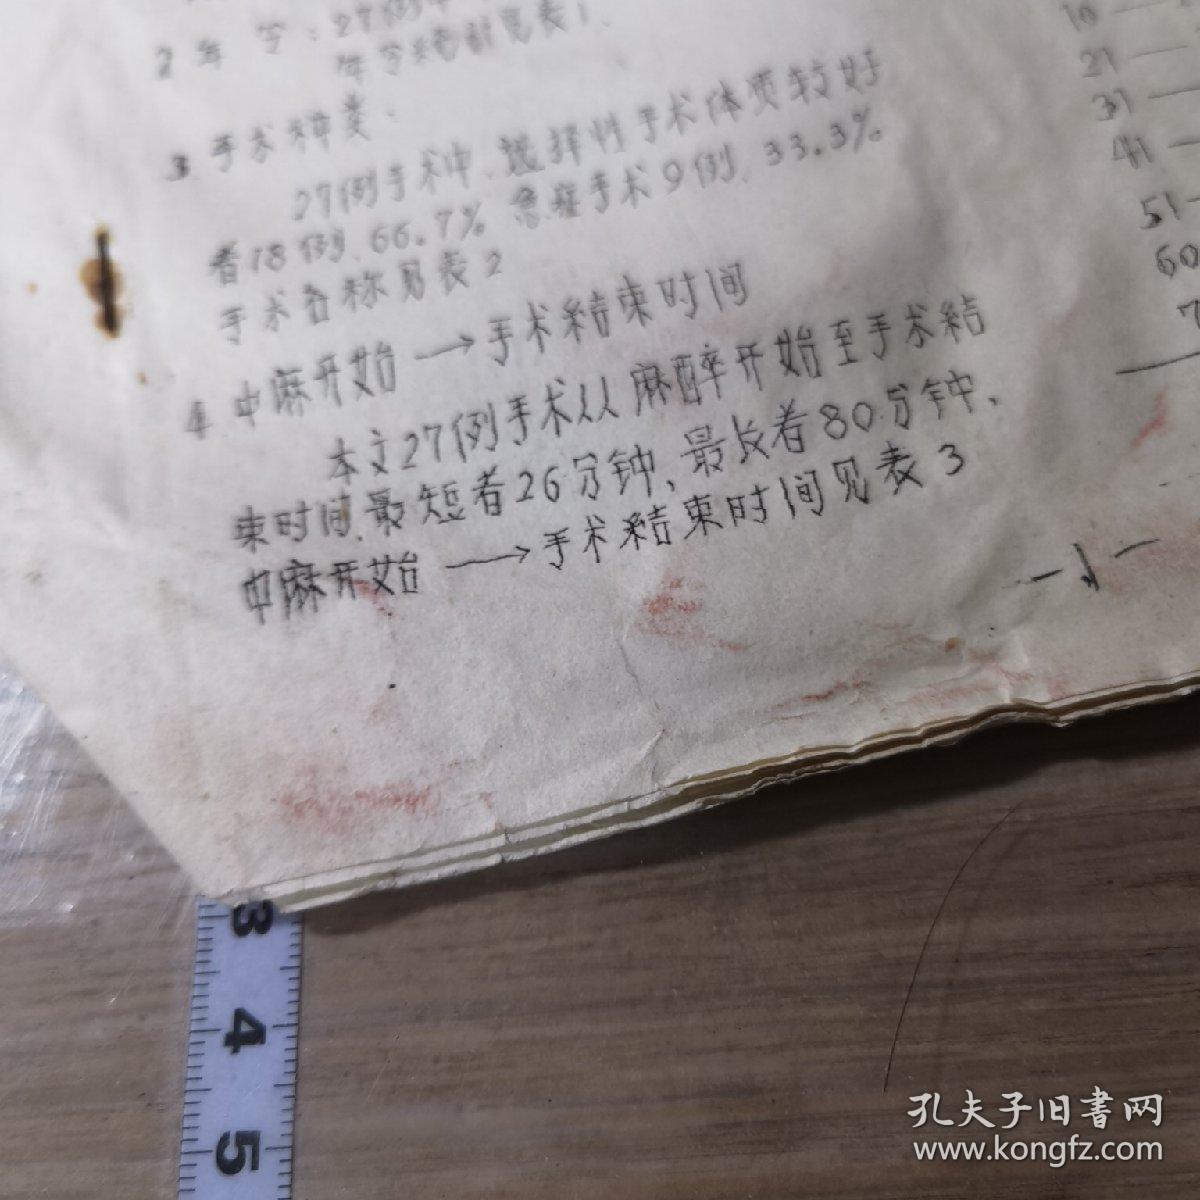 2 年令:27例中
年令
3.手术种类:
27例手术中.选择性手术体质较好
者18例.66.7% 急症手术9例.33.3%
手术名称见表2
4.中麻开始→手术结束时间
本文27例手术从麻醉开始至手术结
束时间.最短者26分钟、最长者80分钟、
中麻开始→手术结束时间见表3
-1-
10—
21—
31—
41—
51—
60
7
3
4
5
孔夫子旧书网
www.kongfz.com